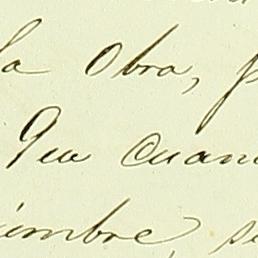 la Obra, p
Que cuan
iembre, se